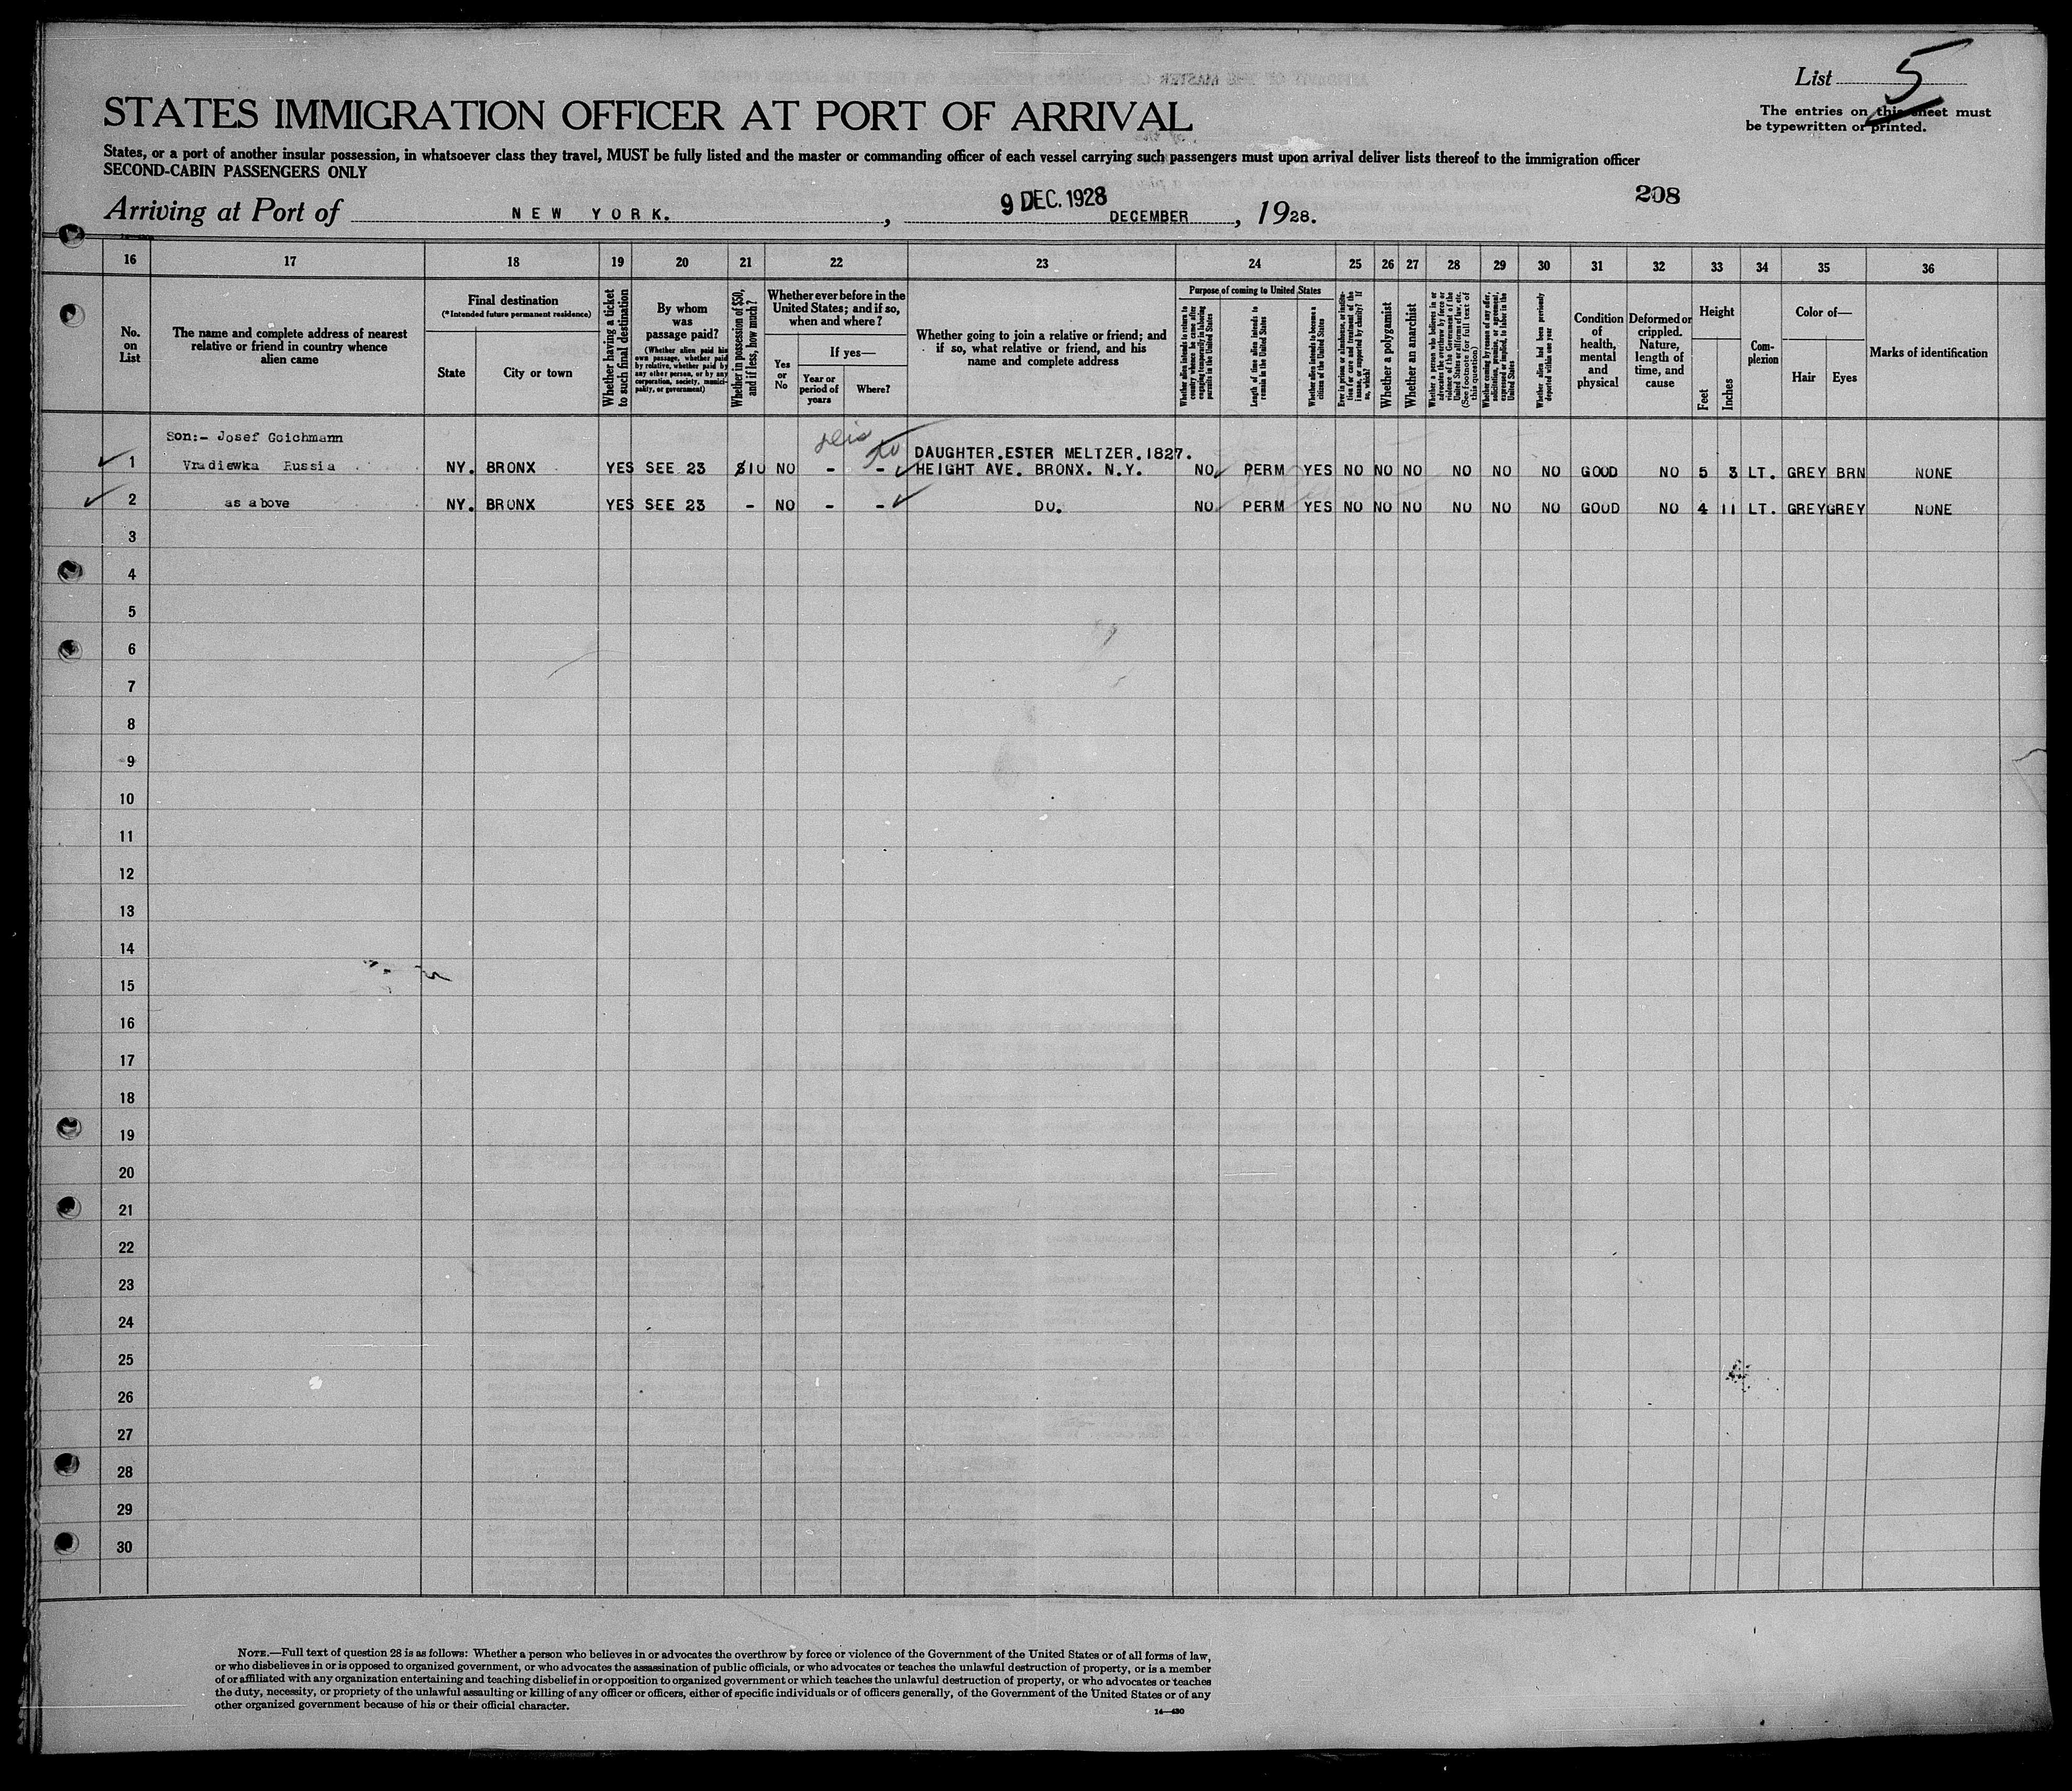 List 5
The entries on this sheet must
be typewritten or printed.
STATES IMMIGRATION OFFICER AT PORT OF ARRIVAL
States, or a port of another insular possession, in whatsoever class they travel, MUST be fully listed and the master or commanding officer of each vessel carrying such passengers must upon arrival deliver lists thereof to the immigration officer
SECOND-CABIN PASSENGERS ONLY
208
9 DEC. 1928
Arriving at Port of NEW YORK. , DECEMBER , 1928.
16 17 18 19 20 21 22 23 24 25 26 27 28 29 30 31 32 33 34 35 36
No.
on
List
The name and complete address of nearest
relative or friend in country whence
alien came
Final destination
(*Intended future permanent residence)
State
City or town
Whether having a ticket
to such final destination
By whom
was
passage paid?
(Whether alien paid his
own passage, whether paid
by relative, whether paid by
any other person, or by any
corporation, society, munici-
pality, or government)
Whether in possession of $50,
and if less, how much?
Whether ever before in the
United States; and if so,
when and where?
Yes
or
No
If yes—
Year or
period of
years
Where?
Whether going to join a relative or friend; and
if so, what relative or friend, and his
name and complete address
Purpose of coming to United States
Whether alien intends to return to
country whence he came after
engaging temporarily in laboring
pursuits in the United States
Length of time alien intends to
remain in the United States
Whether alien intends to become a
citizen of the United States
Ever in prison or almshouse, or institu-
tion for care and treatment of the
insane, or supported by charity? If
so, which?
Whether a polygamist
Whether an anarchist
Whether a person who believes in or
advocates the overthrow by force or
violence of the Government of the
United States or all forms of law, etc.
(See footnote for full text of
this question)
Whether coming by reason of any offer,
solicitation, promise, or agreement,
expressed or implied, to labor in the
United States
Whether alien had been previously
deported within one year
Condition
of
health,
mental
and
physical
Deformed or
crippled.
Nature,
length of
time, and
cause
Height
Feet
Inches
Com-
plexion
Color of—
Hair
Eyes
Marks of identification
Son:- Josef Goichmann
DAUGHTER.ESTER MELTZER.1827.
1 Vradiewka Russia NY. BRONX YES SEE 23 $10 NO - - HEIGHT AVE. BRONX. N.Y. NO. PERM YES NO NO NO NO NO NO GOOD NO 5 3 LT. GREY BRN NONE
2 as above NY. BRONX YES SEE 23 - NO - - DO. NO. PERM YES NO NO NO NO NO NO GOOD NO 4 11 LT. GREY GREY NONE
3
4
5
6
7
8
9
10
11
12
13
14
15
16
17
18
19
20
21
22
23
24
25
26
27
28
29
30
NOTE.—Full text of question 28 is as follows: Whether a person who believes in or advocates the overthrow by force or violence of the Government of the United States or of all forms of law,
or who disbelieves in or is opposed to organized government, or who advocates the assassination of public officials, or who advocates or teaches the unlawful destruction of property, or is a member
of or affiliated with any organization entertaining and teaching disbelief in or opposition to organized government or which teaches the unlawful destruction of property, or who advocates or teaches
the duty, necessity, or propriety of the unlawful assaulting or killing of any officer or officers, either of specific individuals or of officers generally, of the Government of the United States or of any
other organized government because of his or their official character.
14—430